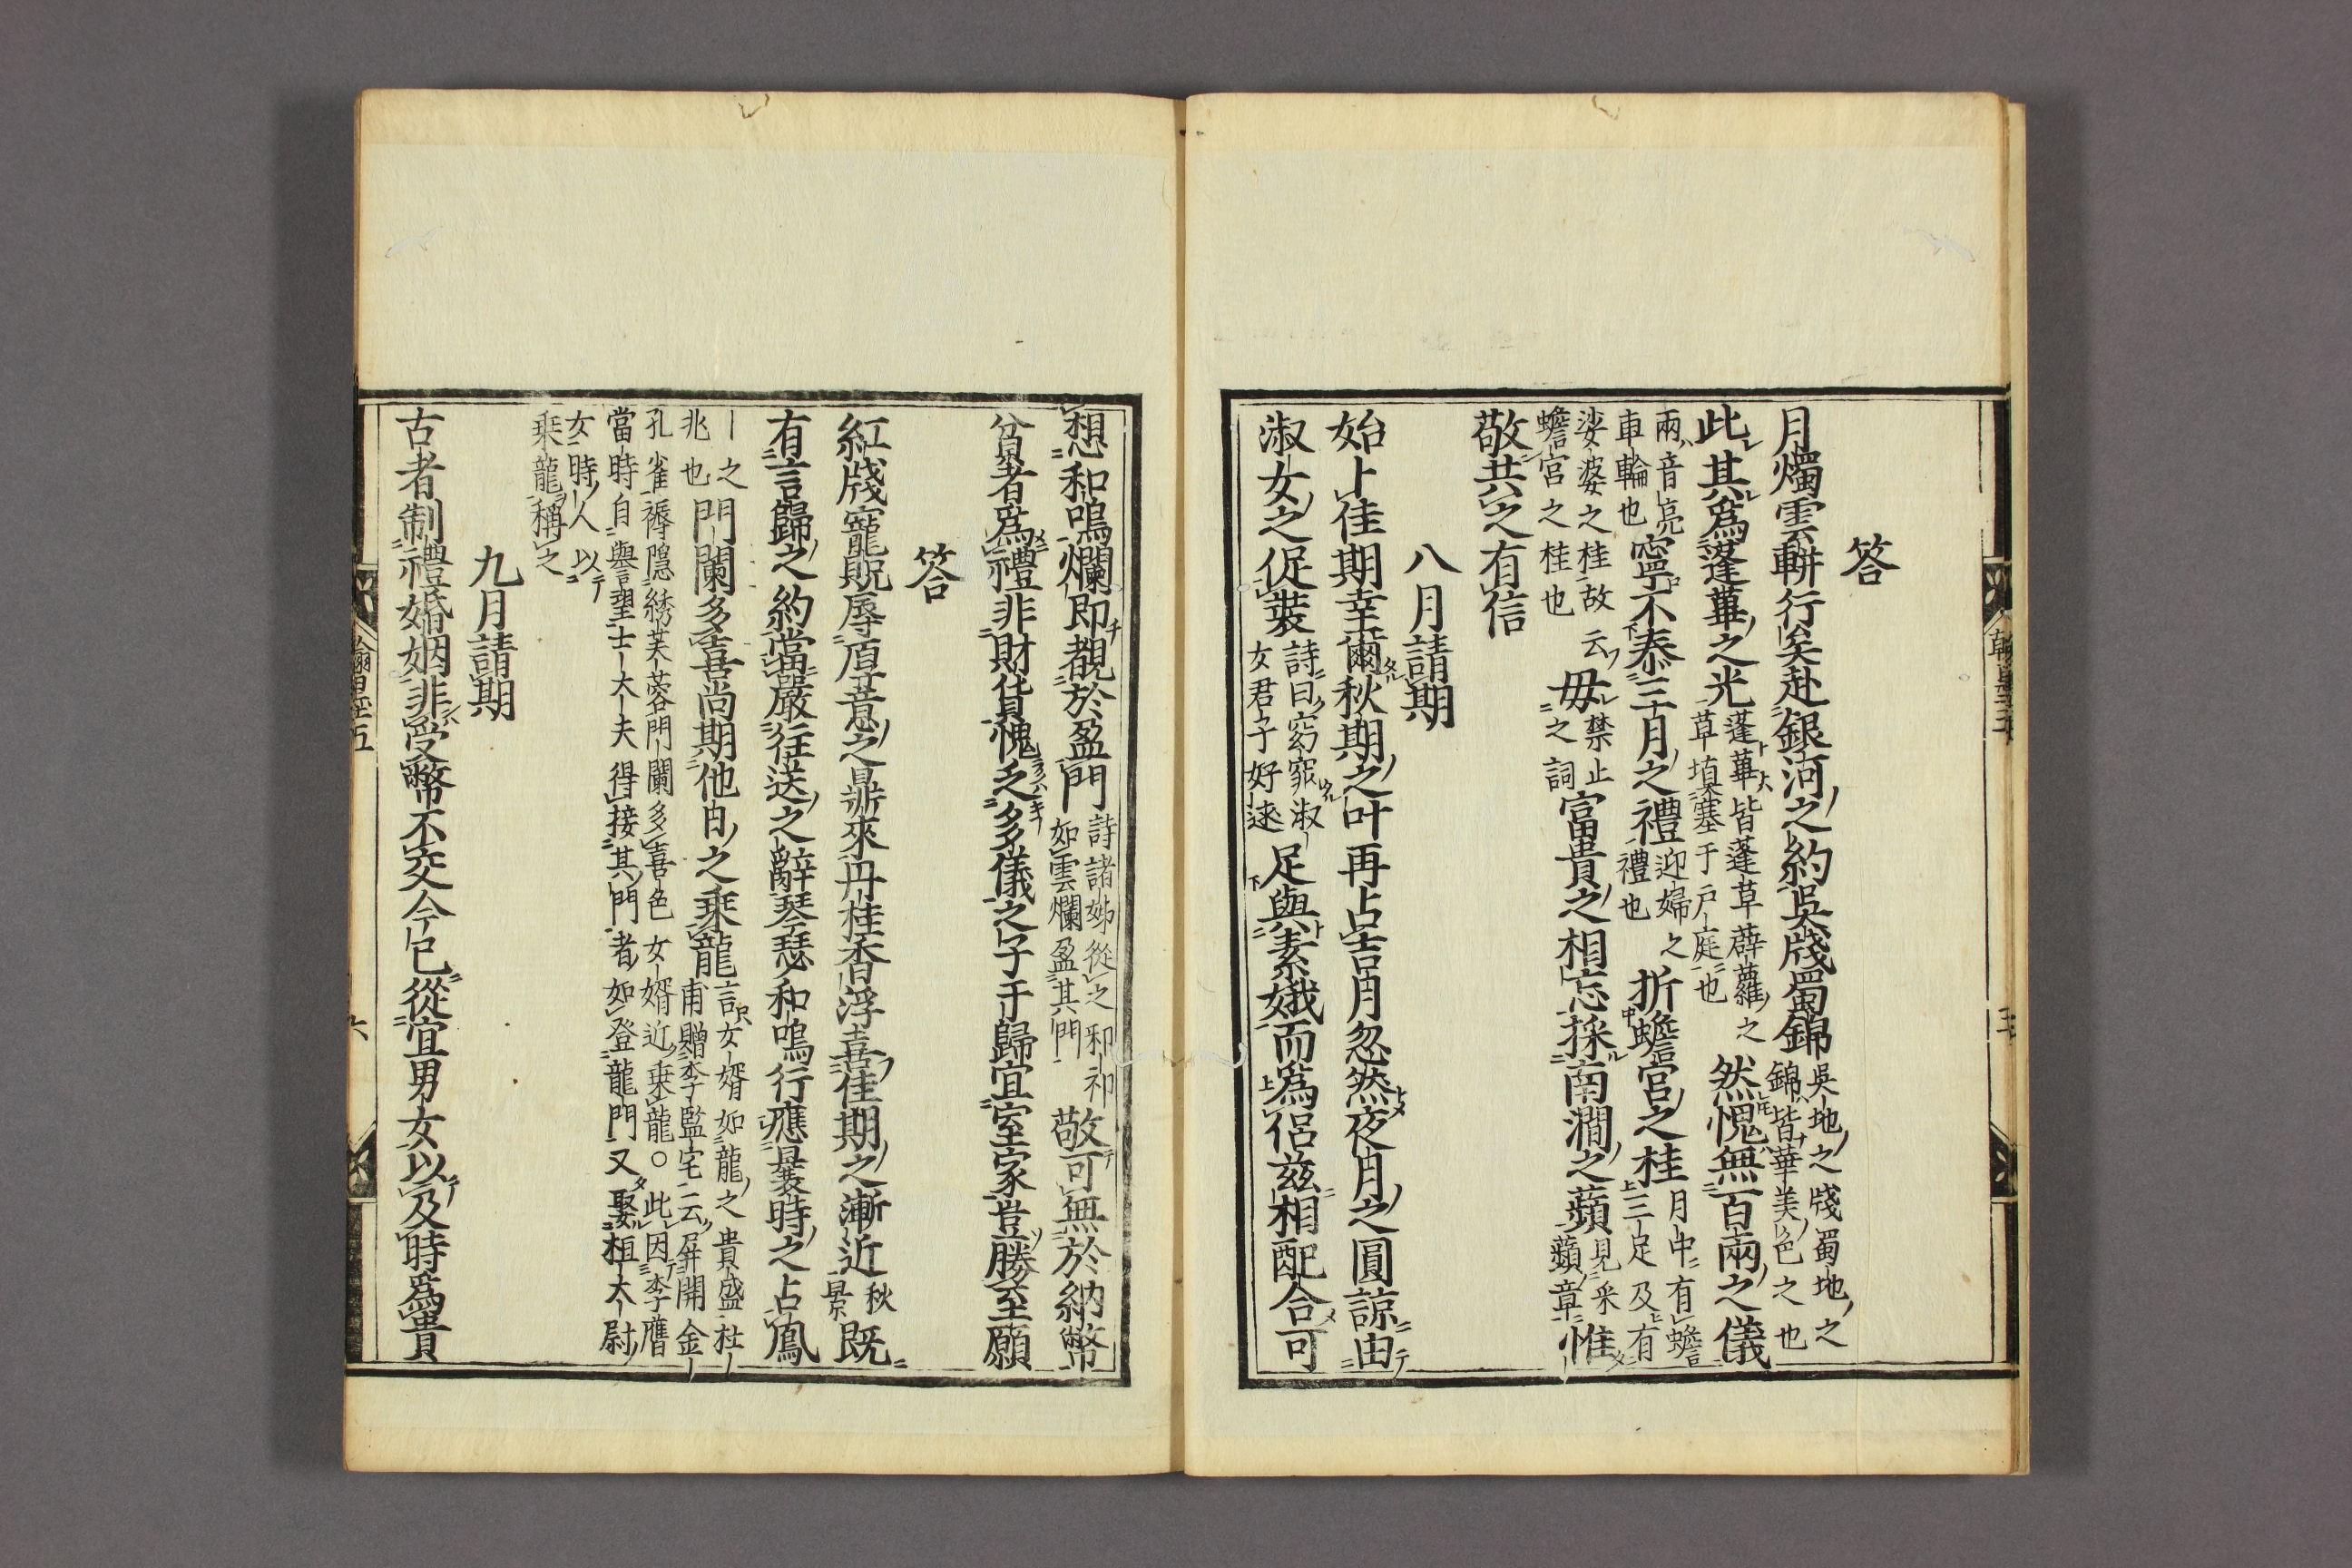 答
月燭雲輧行矣赴銀河之約吳牋蜀錦吳地之牋蜀地之錦皆華美色之也
此其爲蓬蓽之光蓬蓽皆蓬草薜蘿之草塡塞于戶庭也然愧無百兩之儀
兩音亮車輪也寧不泰三月之禮迎婦之禮也折蟾宮之桂月中有蟾三足及有
娑婆之桂故云蟾宮之桂也毋禁止之詞富貴之相忘採南澗之蘋見采蘋章惟
敬共之有信
八月請期
始卜佳期幸爾秋期之叶再占吉月忽然夜月之圓諒由
淑女之促裝詩曰窈窕淑女君子好逑足與素娥而爲侶兹相配合可
想和鳴爛即覩於盈門詩諸姊從之祁祁如雲爛盈其門敬可無於納幣
貧者爲禮非財貨愧乏多儀之子于歸宜室家豈勝至願
答
紅牋寵貺辱厚意之鼎來丹桂香浮喜佳期之漸近秋景既
有言歸之約當嚴徃送之辭琴瑟和鳴行應曩時之占鳳
之兆也門闌多喜尚期他日之乗龍言女婿如龍之貴盛杜甫贈李監宅云屏開金
孔雀褥隠綉芙蓉門闌多喜色女婿近乗龍○此因李膺
當時自譽望士大夫得接其門者如登龍門又娶桓大尉
女時人以乗龍稱之
九月請期
古者制禮婚姻非受幣不交今已從宜男女以及時爲貴
六